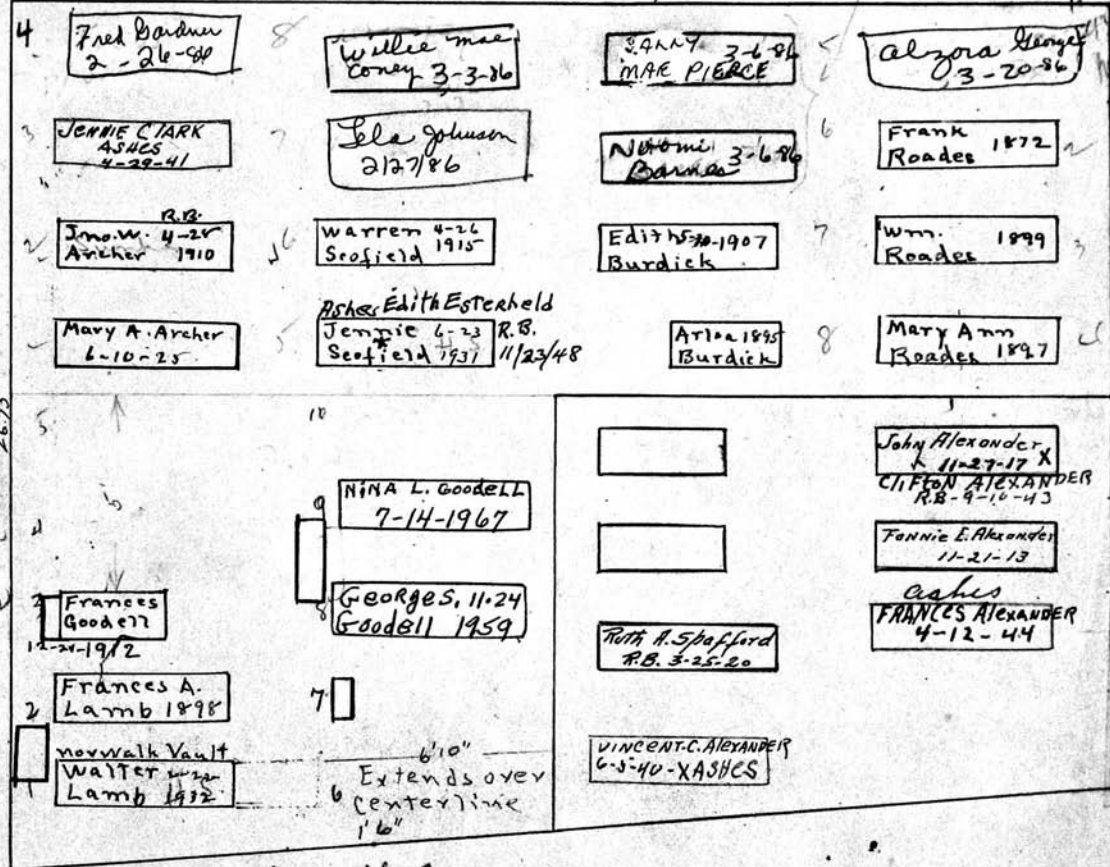 4
Fred Gardner
2-26-86
8
Willie mae
Coney 3-3-86
SALLY 3-6-86
MAE PIERCE
5
Alzora George
3-20-86
3
JENNIE CLARK
ASHES
4-29-41
7
Lela Johnson
2/27/86
Naomi 3-6-86
Barnes
6
Frank
Roades 1872
2
R.B.
Jno. W. 4-25
Archer 1910
6
Warren 4-26
Scofield 1915
Edith 5-30-1907
Burdick
7
Wm. 1899
Roades
3
Mary A. Archer
6-10-25
5
Ashes Edith Esterheld
Jennie 6-23 R.B.
Scofield 1931 11/23/48
Arloa 1895
Burdick
8
Mary Ann
Roades 1897
4
26.75
5
10
9
NINA L. GOODELL
7-14-1967
John Alexander
11-27-17 X
CLIFTON ALEXANDER
R.B-9-16-43
4
Fannie E. Alexander
11-21-13
3
Frances
Goodell
12-24-1912
8
George S. 11-24
Goodell 1959
ashes
FRANCES Alexander
4-12-44
Ruth A. Spafford
R.B. 3-25-20
Frances A.
Lamb 1898
2
7
norwalk Vault
Walter
Lamb 1932
1
6'10"
6 Extends over
centerline
1'6"
VINCENT.C. ALEXANDER
6-5-40-XASHES